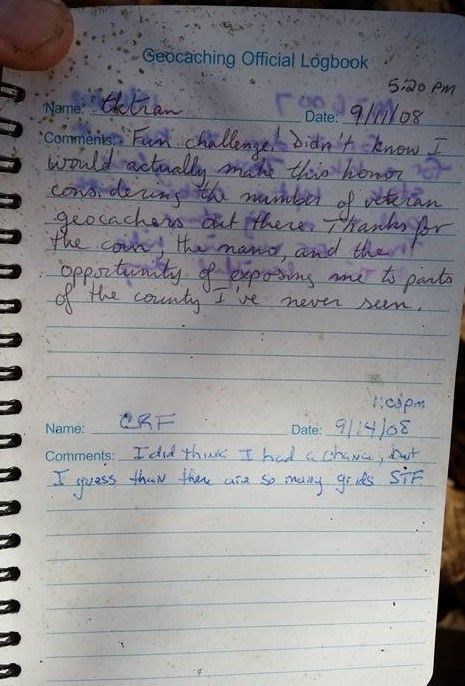 Geocaching Official Logbook
5:20 pm
Name: tktran Date: 9/11/08
Comments: Fun challenge! Didn't know I
would actually make this honor
considering the number of veteran
geocachers out there. Thanks for
the coin, the nano, and the
opportunity of exposing me to parts
of the county I've never seen.
pm
Name: CRF Date: 9/14/08
Comments: I did think I had a chance, but
I guess than there are so many grids STF